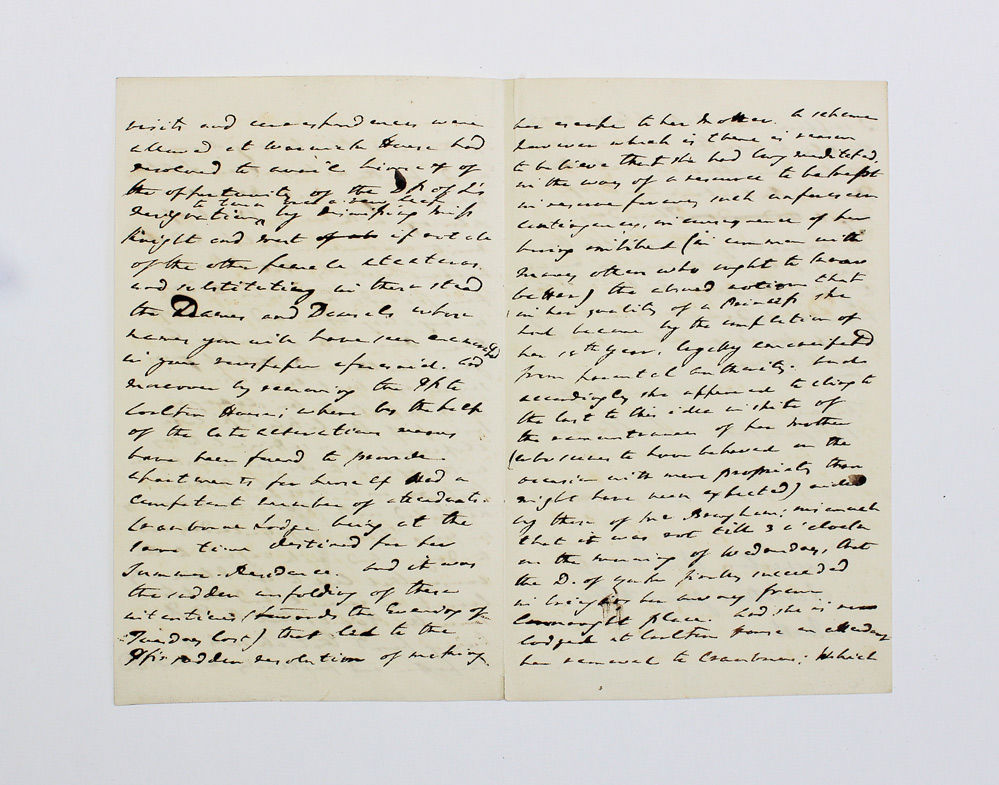 visits and correspondences were
allowed at Warwick House had
resolved to avail himself of
the opportunity of the Dss of L's
to town was a very
resignation by dismissing Miss
Knight and most if not all
of the other female attendants
and substituting in their stead
the Dames and Damsels whose
names you will have seen announced
in your newspaper aforesaid. And
moreover by removing the Pss to
Carlton House; where by the help
of the late alterations means
have been found to provide
apartments for herself and a
competent number of attendants.
Cranbourne Lodge being at the
same time destined for her
Summer-Residence. And it was
the sudden unfolding of these
intentions (towards the Evening of
Tuesday last) that led to the
Pss's sudden resolution of making
her escape to her Mother. A scheme
however which is there is reason
to believe that she had long meditated,
in the way of a resource to be kept
in reserve for any such unforeseen
contingences, in consequence of her
having imbibed (in common with
many others who ought to know
better) the absurd notion that
in her quality of a Princess she
had become by the completion of
her 18th year, legally emancipated
from parental authority. And
accordingly she appeared to cling to
the last to this idea in spite of
the remonstrances of her Mother
(who seems to have behaved on the
occasion with more propriety than
might have been expected) aided
by those of Mr Brougham; insomuch
that it was not till 3 o'clock
in the morning of Wednesday, that
the D. of York finally succeeded
in bringing her away from
Connaught place. And she is now
lodged at Carlton House on attending
her removal to Cranbourne; Which